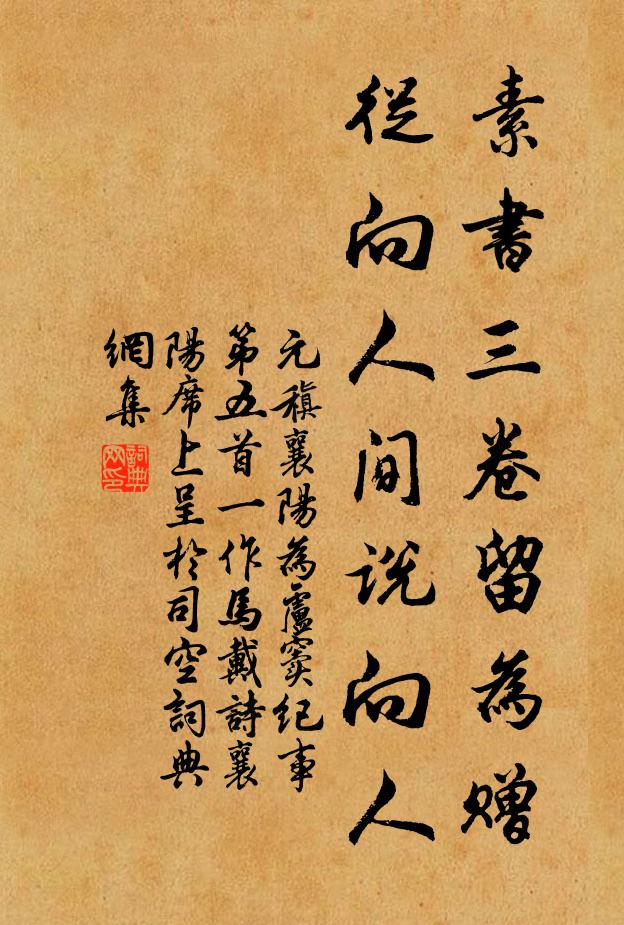 素書三卷留為贈
從向人間說向人
元稹襄陽為盧竇紀事
第五首一作馬戴詩襄
陽席上呈於司空詞典
網集
詞典網印